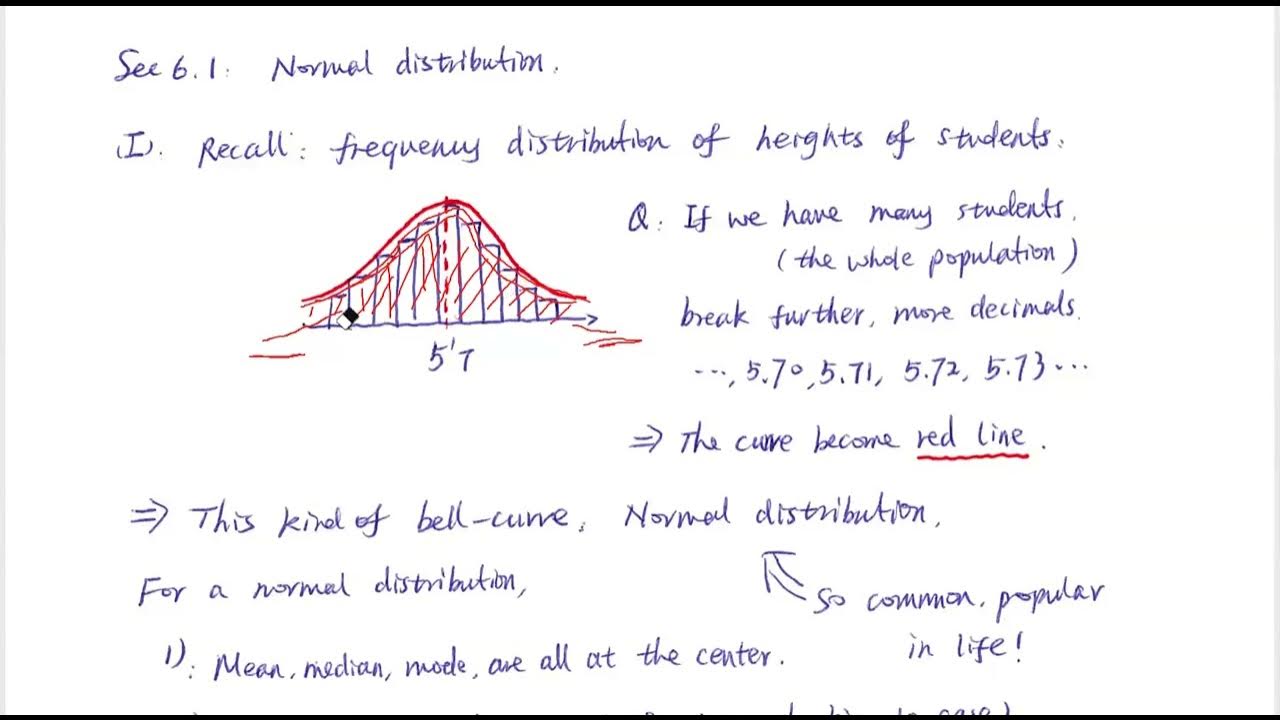 Sec 6.1: Normal distribution.
(I). Recall: frequency distribution of heights of students.
Q: If we have many students.
(the whole population)
break further, more decimals.
..., 5.70, 5.71, 5.72, 5.73...
5'7
⇒ The curve become red line.
⇒ This kind of bell-curve, Normal distribution.
For a normal distribution,
so common, popular
in life!
1): Mean, median, mode, are all at the center.